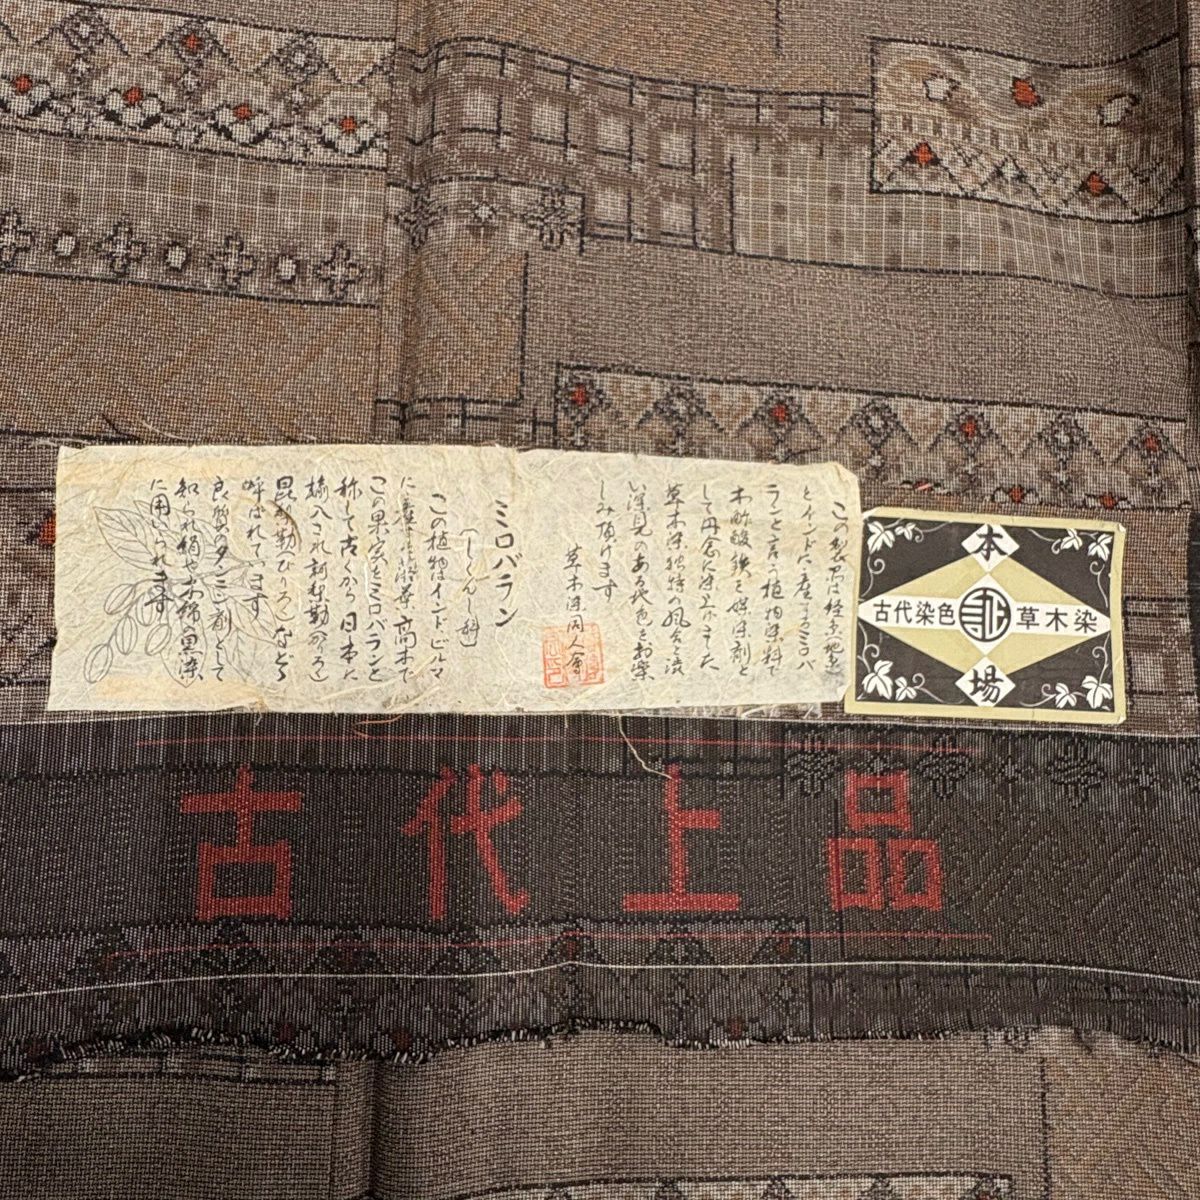 この製品は経糸
とインドに産するミロバ
ランと言う植物染料で
木酢酸鉄を媒染剤と
して丹念に染上げました
草木染独特の風合と渋
い深見のある色をお楽
しみ頂けます
草木染同人會
ミロバラン
(しくんし科)
この植物はインド、ビルマ
に産する落葉高木で
この果実をミロバランと
称して古くから日本に
輸入され訶梨勒(かりろく)
昆梨勒(びりろく)などゝ
呼ばれています
良質のタンニン剤として
知られ絹やお綿の黒染
に用いられます
本場
古代染色 証 草木染
古代上品